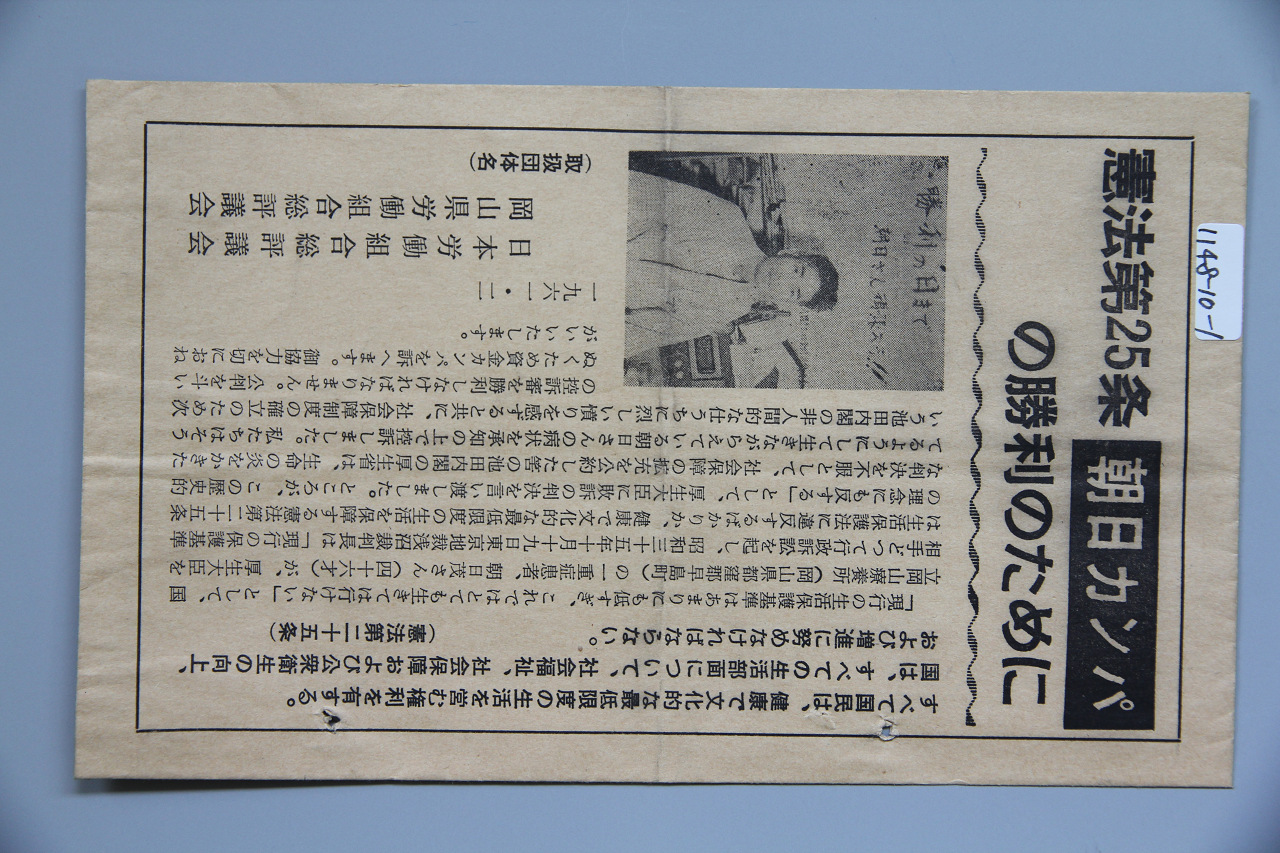 憲法第25条 朝日カンパ
の勝利のために
勝利の日まで
朝日さん
すべて国民は、健康で文化的な最低限度の生活を営む権利を有する。
国は、すべての生活部面について、社会福祉、社会保障および公衆衛生の向上、
および増進に努めなければならない。 （憲法第二十五条）
「現行の生活保護基準はあまりにも低すぎ、これではとても生きては行けない」として、国
立岡山療養所（岡山県都窪郡早島町）の一重症患者、朝日茂さん（四十六才）が、厚生大臣を
相手どって行政訴訟を起し、昭和三十五年十月十九日東京地裁浅沼裁判長は「現行の保護基準
は生活保護法に違反するばかりか、健康で文化的な最低限度の生活を保障する憲法第二十五条
の理念にも反する」として、厚生大臣に敗訴の判決を言い渡しました。ところが、この歴史的
な判決を不服として、社会保障の拡充を公約した筈の池田内閣の厚生省は、生命の炎をかきた
てるようにして生きながらえている朝日さんの病状を承知の上で控訴しました。私たちはそう
いう池田内閣の非人間的な仕うちに烈しい憤りを感ずると共に、社会保障制度の確立のため次
の控訴審を勝利しなければなりません。公判を斗い
ぬくため資金カンパを訴へます。御協力を切におね
がいいたします。
一九六一・二
日本労働組合総評議会
岡山県労働組合総評議会
（取扱団体名）
1148-10-1